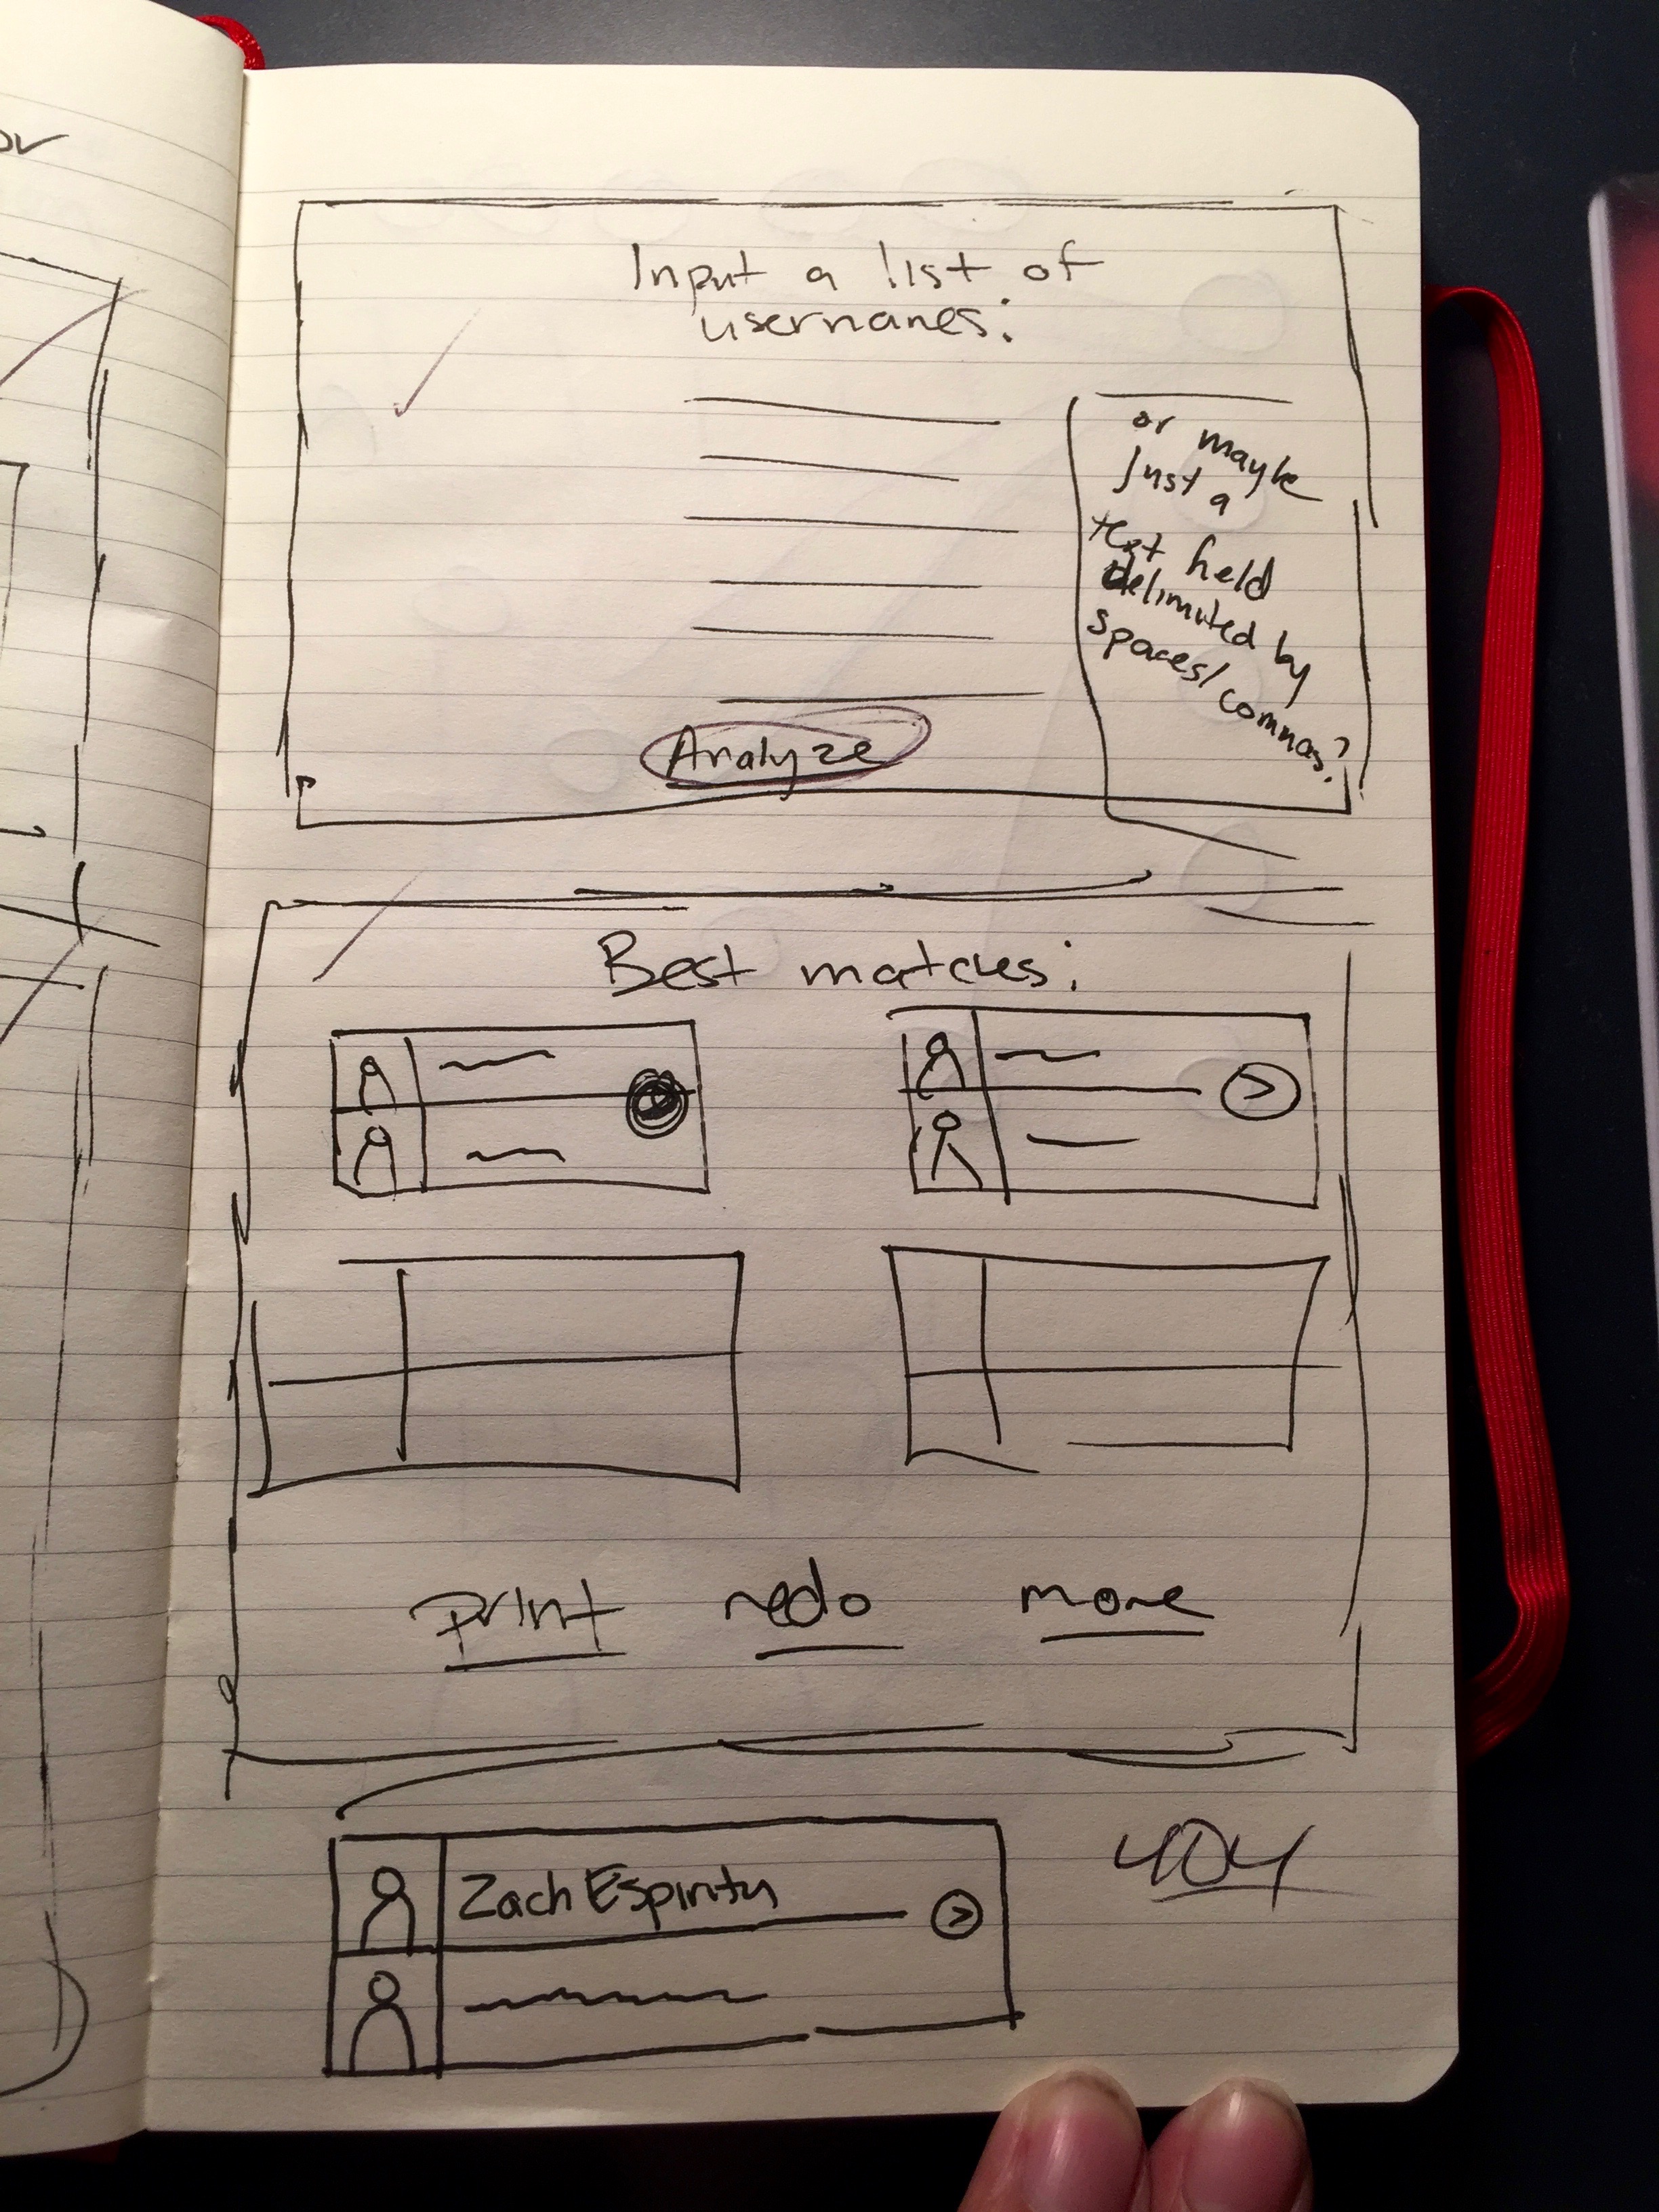 Input a list of
usernames:
or maybe
just a
text field
delimited by
spaces/commas?
Analyze
Best matches:
print redo more
Zach Espiritu
404